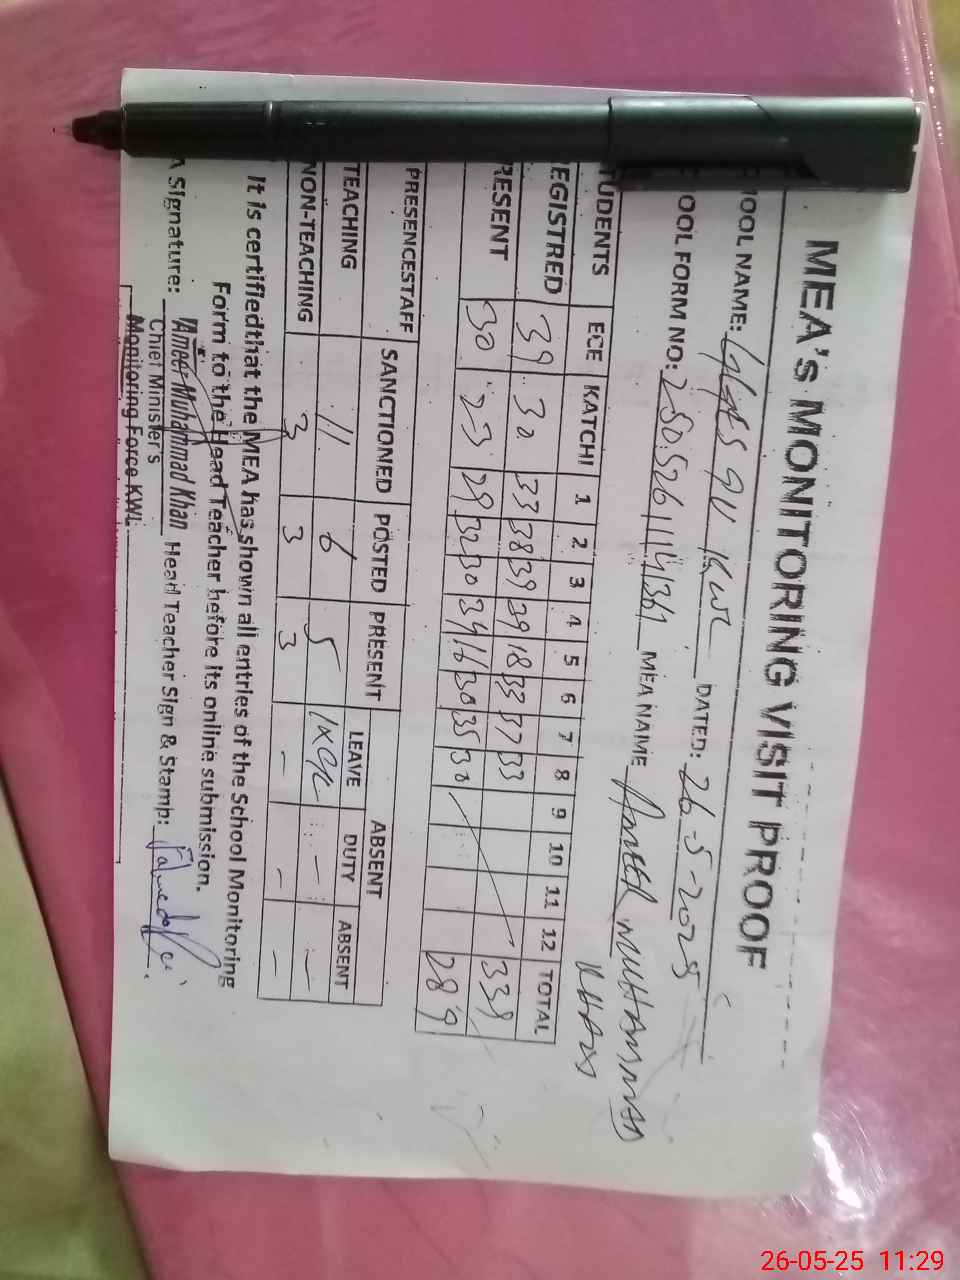 MEA's MONITORING VISIT PROOF
OOL NAME: KWL DATED: 26-5-2025
OOL FORM NO: MEA NAME AMEER MUHAMMAD
KHAN
TUDENTS ECE KATCHI 1 2 3 4 5 6 7 8 9 10 11 12 TOTAL
EGISTRED 39 30 33 38 39 29 18 33 37 33 338
RESENT 30 23 29 32 30 34 16 30 35 30 289
PRESENCESTAFF SANCTIONED POSTED PRESENT ABSENT
LEAVE DUTY ABSENT
TEACHING 11 6 5 - -
NON-TEACHING 3 3 3 - - -
It is certifiedthat the MEA has shown all entries of the School Monitoring
Form to the Head Teacher before its online submission.
A Signature: Ameer Muhammad Khan Head Teacher Sign & Stamp:
Chief Minister's
Monitoring Force KWL
26-05-25 11:29